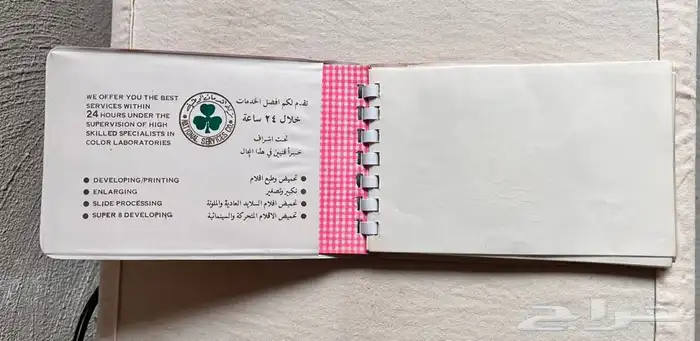 WE OFFER YOU THE BEST
SERVICES WITHIN
24 HOURS UNDER THE
SUPERVISION OF HIGH
SKILLED SPECIALISTS IN
COLOR LABORATORIES
NATIONAL SERVICES CO.
نقدم لكم افضل الخدمات
خلال ٢٤ ساعة
تحت اشراف
خبراء فنيين في هذا المجال
• DEVELOPING/PRINTING
• ENLARGING
• SLIDE PROCESSING
• SUPER 8 DEVELOPING
تحميض وطبع افلام •
تكبير وتصغير •
تحميض افلام السلايد العادية والملونة •
تحميض الافلام المتحركة والسينمائية •
حراج